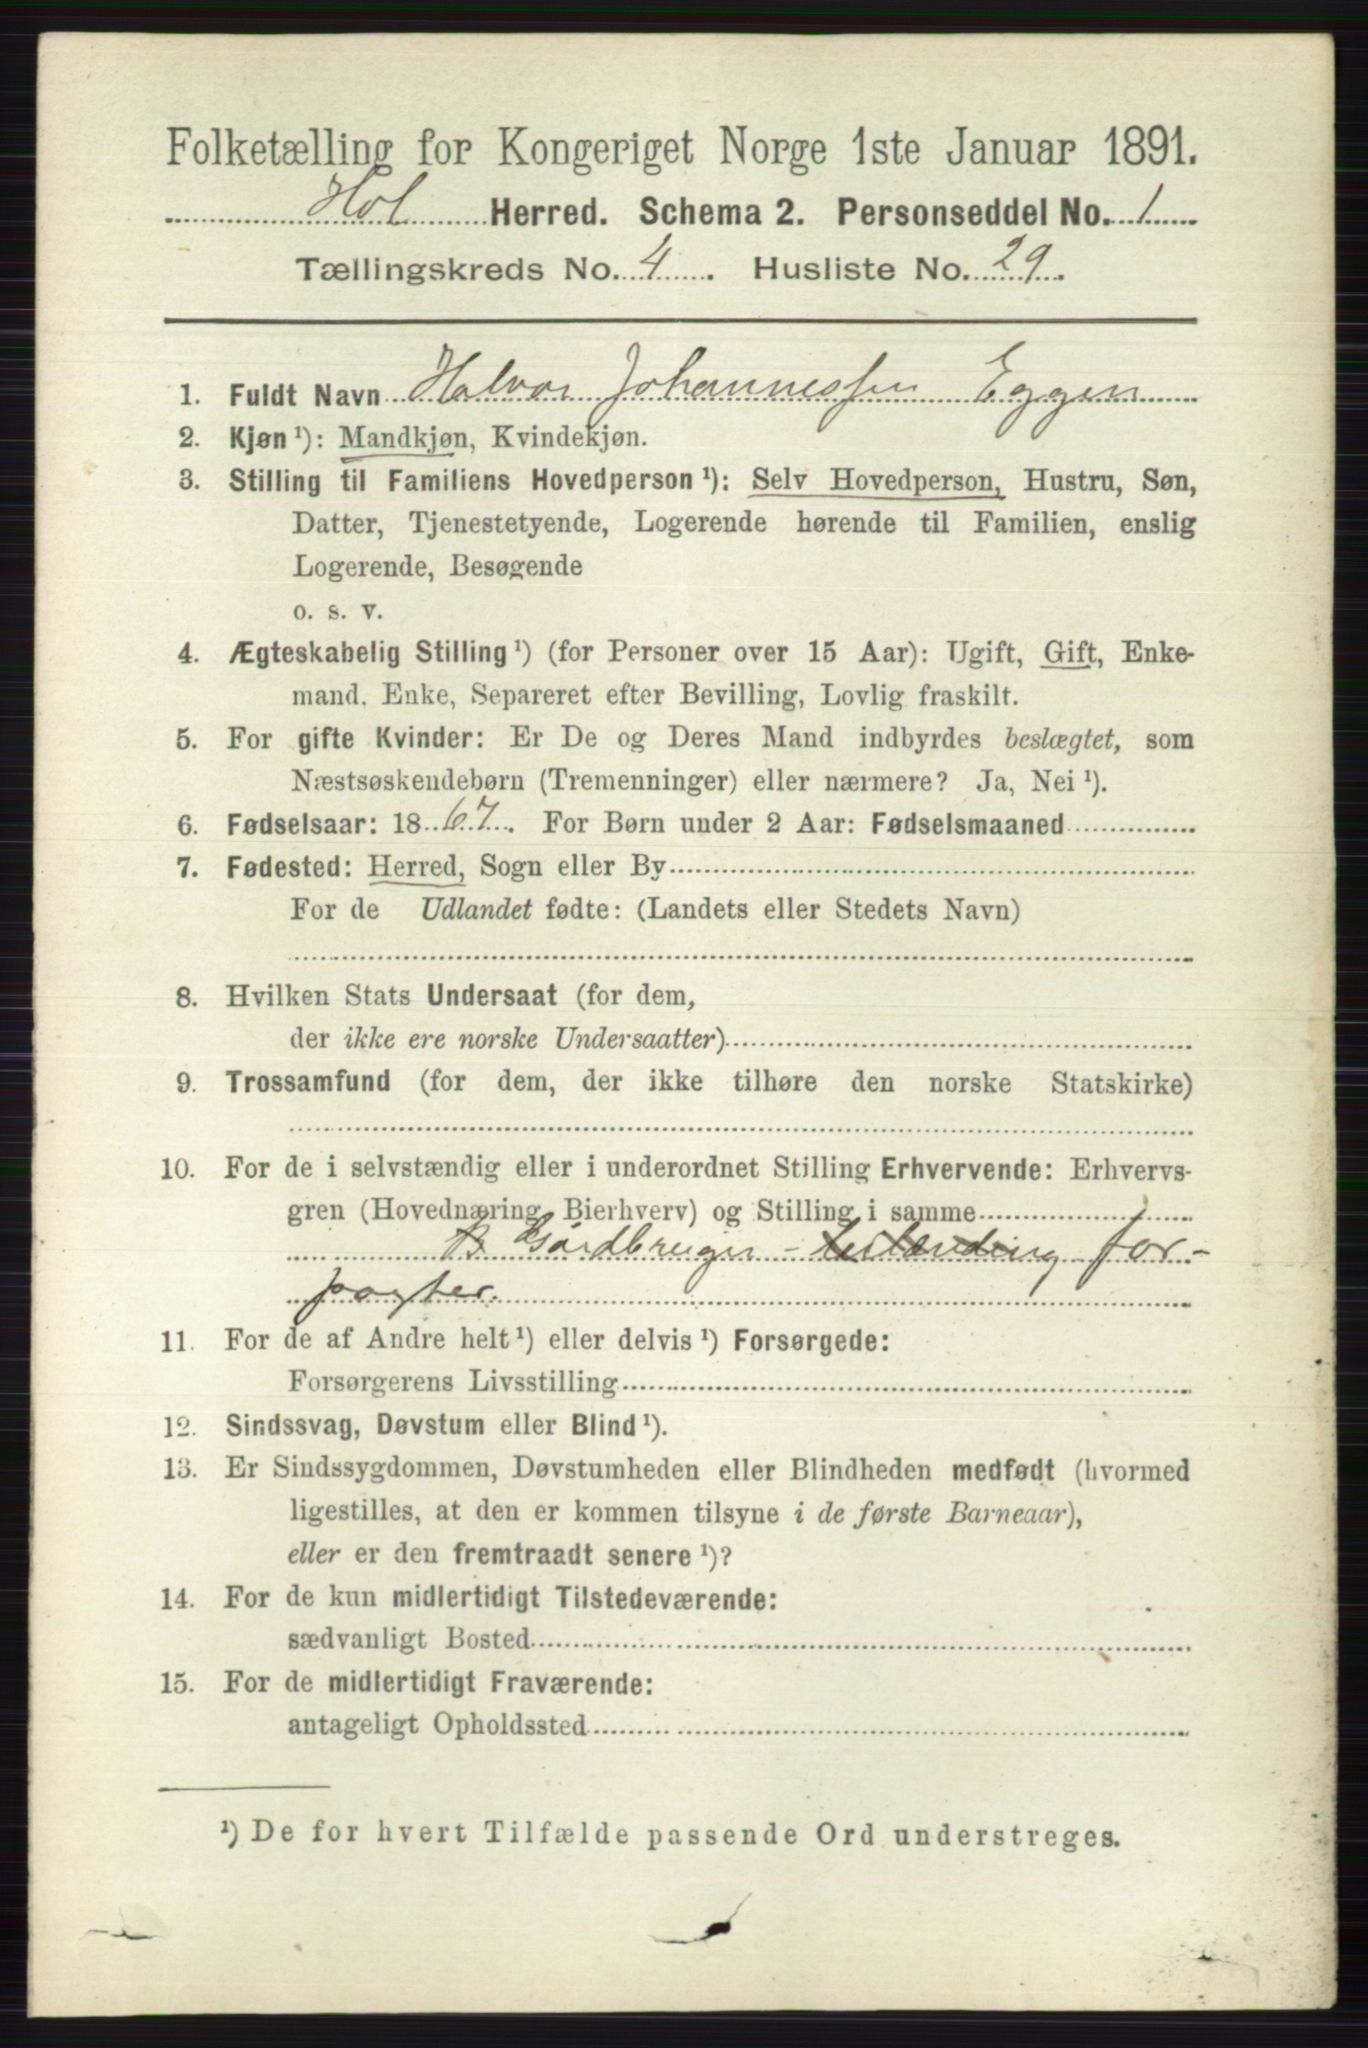 Folketælling for Kongeriget Norge 1ste Januar 1891.
Hol Herred. Schema 2. Personseddel No. 1
Tællingskreds No. 4. Husliste No. 29.
1. Fuldt Navn Halvor Johannessen Eggen
2. Kjøn ¹): Mandkjøn, Kvindekjøn.
3. Stilling til Familiens Hovedperson ¹): Selv Hovedperson, Hustru, Søn,
Datter, Tjenestetyende, Logerende hørende til Familien, enslig
Logerende, Besøgende
o. s. v.
4. Ægteskabelig Stilling ¹) (for Personer over 15 Aar): Ugift, Gift, Enke-
mand, Enke, Separeret efter Bevilling, Lovlig fraskilt.
5. For gifte Kvinder: Er De og Deres Mand indbyrdes beslægtet, som
Næstsøskendebørn (Tremenninger) eller nærmere? Ja, Nei ¹).
6. Fødselsaar: 1867. For Børn under 2 Aar: Fødselsmaaned
7. Fødested: Herred, Sogn eller By
For de Udlandet fødte: (Landets eller Stedets Navn)
8. Hvilken Stats Undersaat (for dem,
der ikke ere norske Undersaatter)
9. Trossamfund (for dem, der ikke tilhøre den norske Statskirke)
10. For de i selvstændig eller i underordnet Stilling Erhvervende: Erhvervs-
gren (Hovednæring, Bierhverv) og Stilling i samme
B Gaardbruger - Leilænding for-
pagter.
11. For de af Andre helt ¹) eller delvis ¹) Forsørgede:
Forsørgerens Livsstilling
12. Sindssvag, Døvstum eller Blind ¹).
13. Er Sindssygdommen, Døvstumheden eller Blindheden medfødt (hvormed
ligestilles, at den er kommen tilsyne i de første Barneaar),
eller er den fremtraadt senere ¹)?
14. For de kun midlertidigt Tilstedeværende:
sædvanligt Bosted
15. For de midlertidigt Fraværende:
antageligt Opholdssted
¹) De for hvert Tilfælde passende Ord understreges.